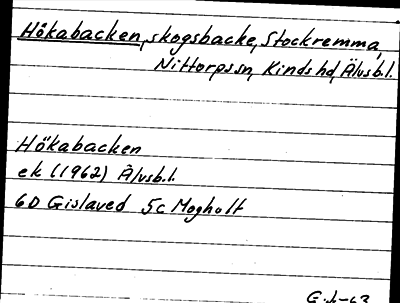 Hökabacken, skogsbacke, Stockremma,
Nittorps sn, Kinds hd, Älvsb.l.
Hökabacken
ek (1962) Älvsb.l.
6D Gislaved 5c Mogholt